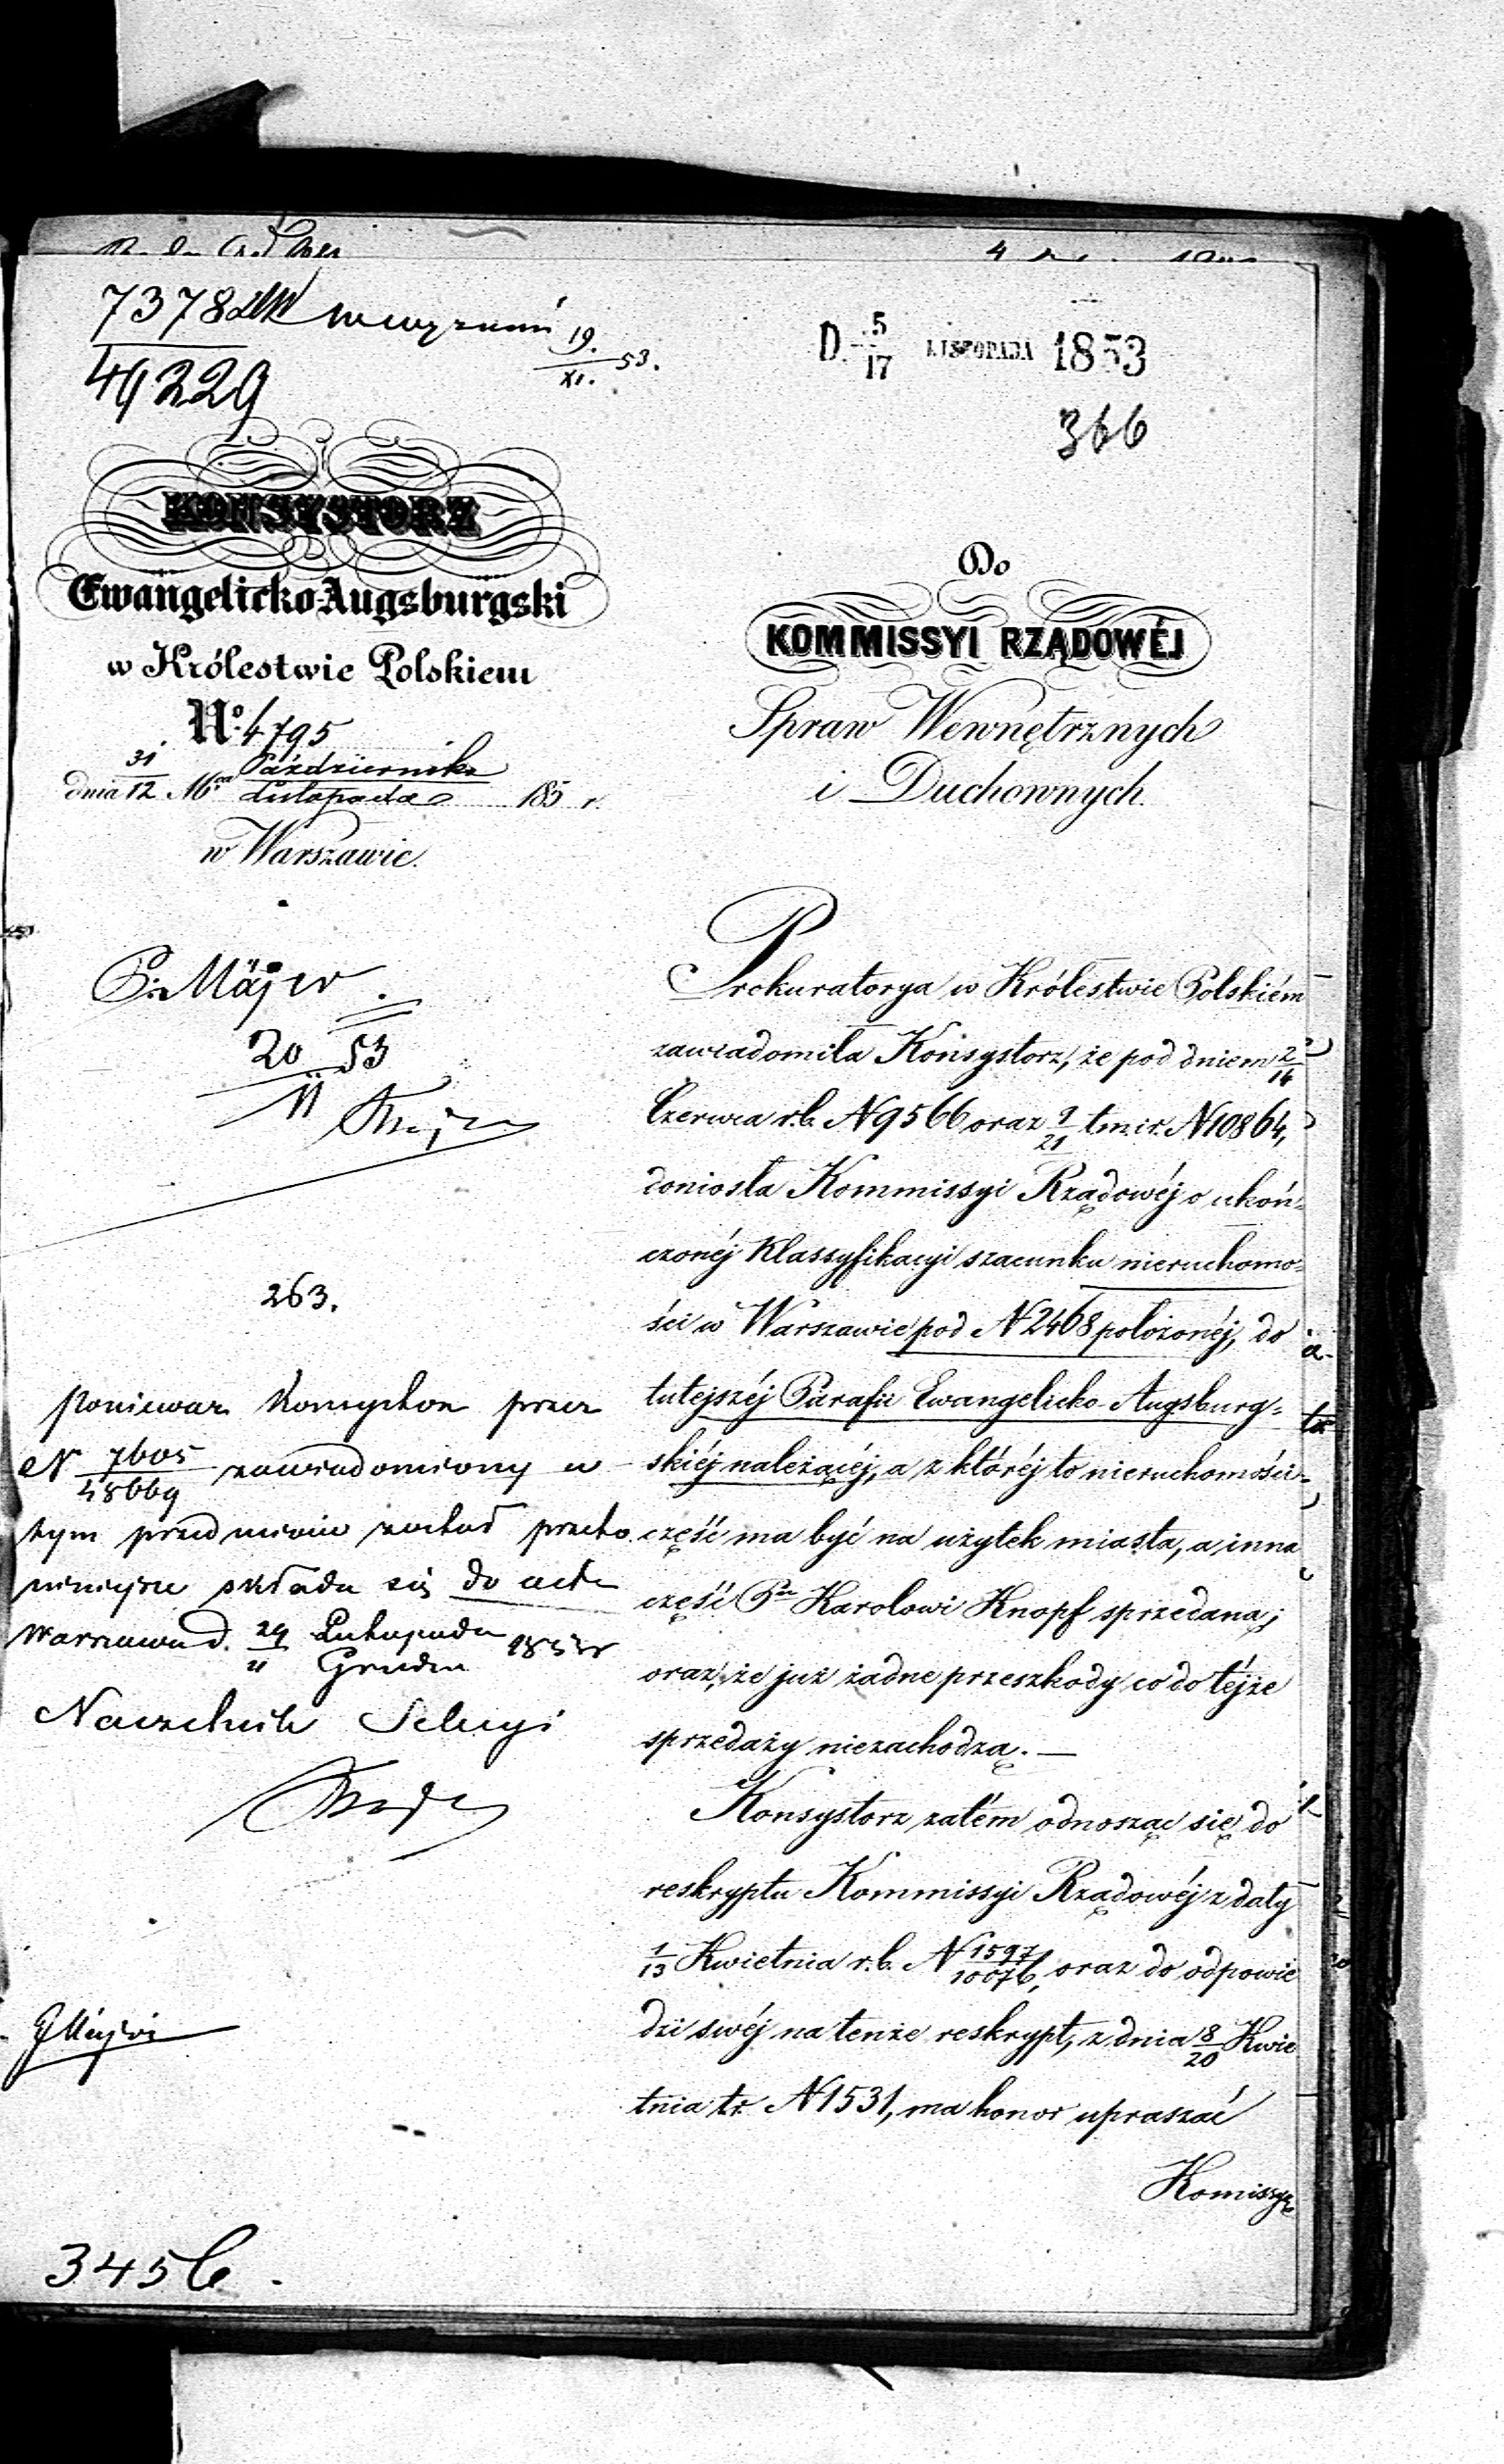 7378
49229
19.
XI. 53.
D. 5/17 LISTOPADA 1853
366
KONSYSTORZ
Ewangelicko Augsburgski
w Królestwie Polskiem
No. 4795
dnia 31/12 Mca Października/Listopada 185 r.
w Warszawie.
Do
KOMMISSYI RZĄDOWÉJ
Spraw Wewnętrznych
i Duchownych.
20 53
11
263.
Ponieważ Konsystorz przez
N 7605/48669 zawiadomiony w
tym przedmiocie został przeto
niniejsze składa się do akt
Warszawa d. 29/11 Listopada/Grudnia 1853 r
Naczelnik Sekcyi
3456.
Prokuratorya w Królestwie Polskiém
zawiadomiła Konsystorz, że pod dniem 2/14
Czerwca r.b. N 9566 oraz 9/21 t.m. i r. N 10864,
doniosła Kommissyi Rządowéj o ukoń=
czonéj Klassyfikacyi szacunku nieruchomo=
ści w Warszawie pod N 2468 położonéj, do
tutejszéj Parafii Ewangelicko-Augsburg=
skiéj należącéj, a z któréj to nieruchomości
część ma być na użytek miasta, a inna
część Pu Karolowi Knopf sprzedaną;
oraz, że już żadne przeszkody co do téjże
sprzedaży niezachodzą. —
Konsystorz zatém odnosząc się do
reskryptu Kommissyi Rządowéj z daty
1/13 Kwietnia r.b. N 1597/10076, oraz do odpowie
dzi swéj na tenże reskrypt, z dnia 8/20 Kwie
tnia t.r. N 1531, ma honor upraszać
Komissyę